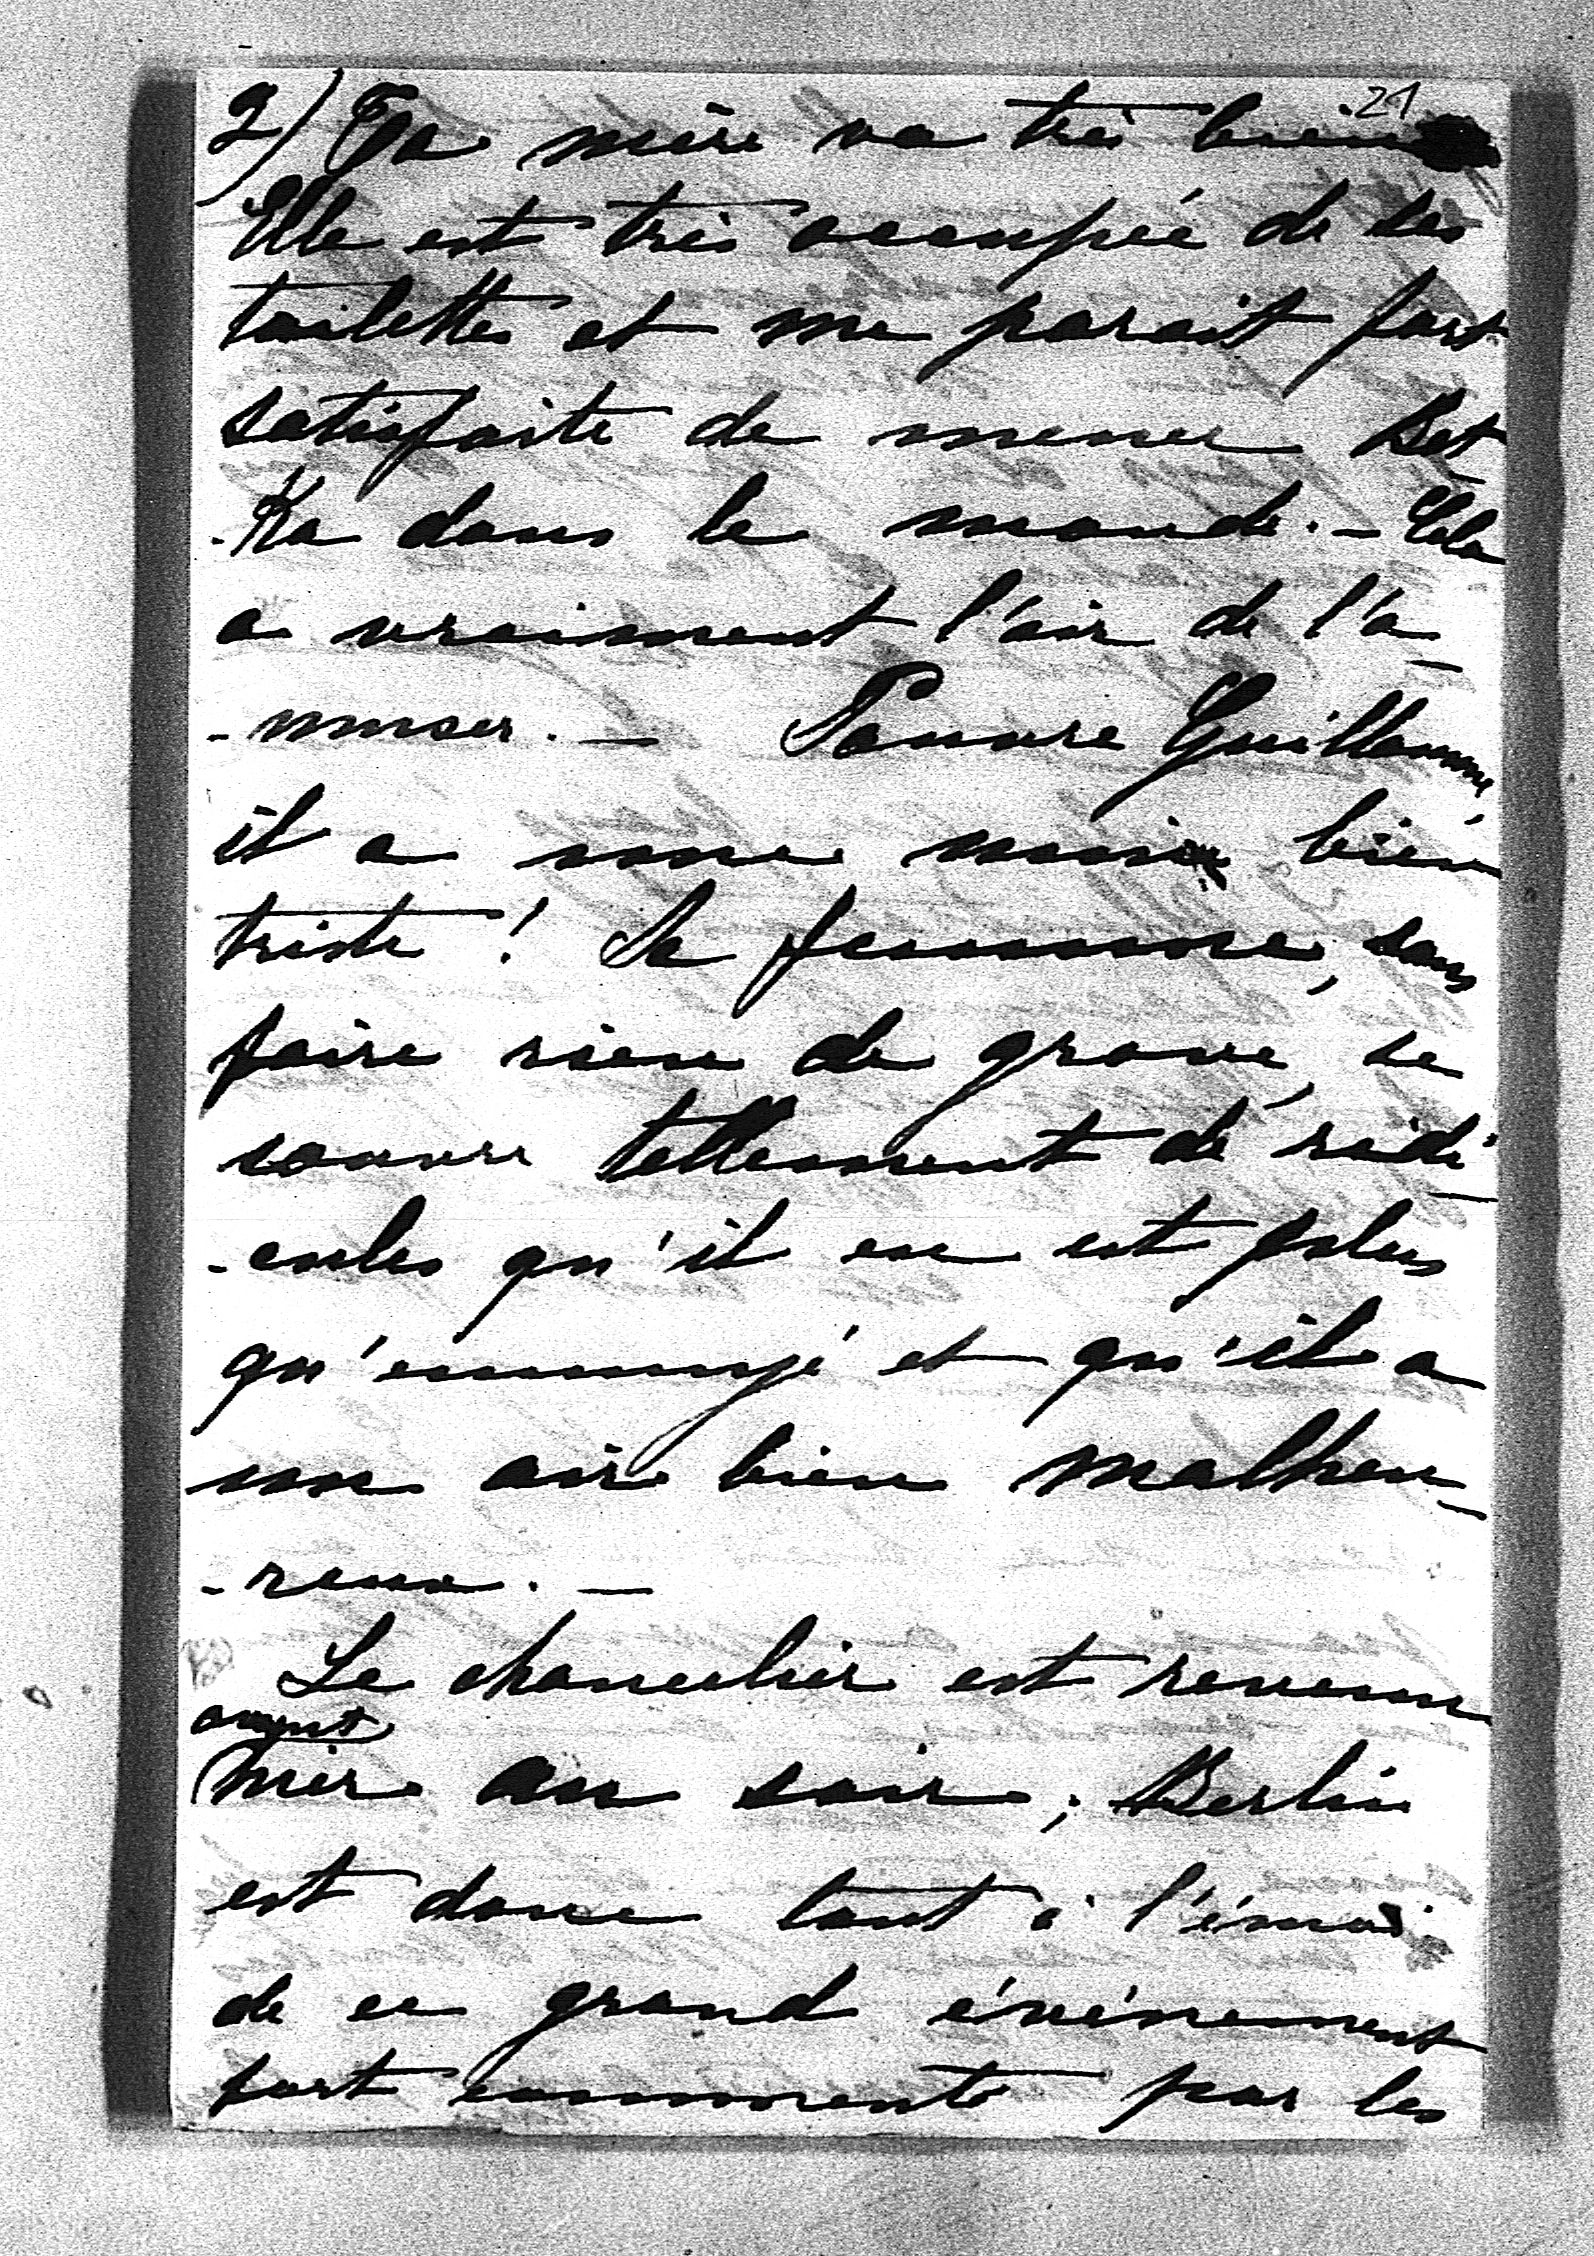 21
2) Ta mère va très bien
Elle est très occupée de ses
toilettes et me parait fort
satisfaite de mener Bet
-Ka dans le monde. - Cela
a vraiment l'air de l'a-
-muser. - Pauvre Guillaume,
il a une mine bien
triste ! Sa femme, sans
faire rien de grave, se
couvre tellement de ridi-
-cules qu'il en est plus
qu'ennuyé et qu'il a
un air bien malheu-
-reux. -
Le chancelier est revenu
avant
hier au soir ; Berlin
est donc tout à l'émoi
de ce grand événement
fort commenté par les